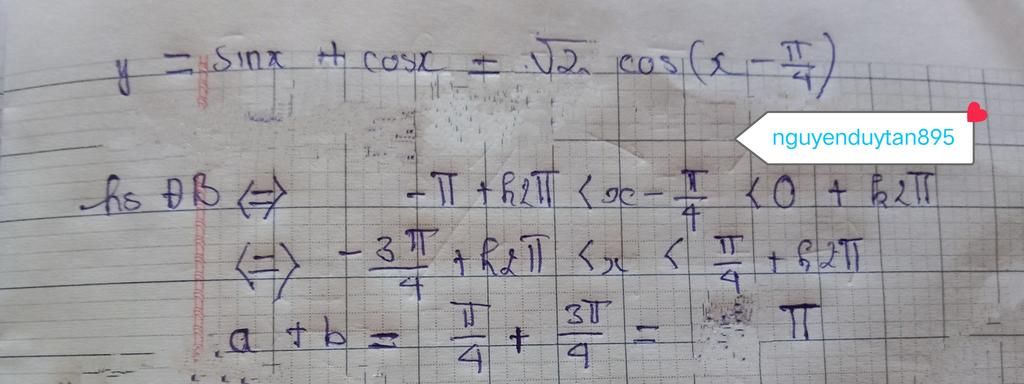 y = sinx + cosx = √2 cos(x - π/4)
nguyenduytan895
hs ĐB <=> -π + k2π < x - π/4 < 0 + k2π
<=> -3π/4 + k2π < x < π/4 + k2π
a + b = π/4 + 3π/4 = π